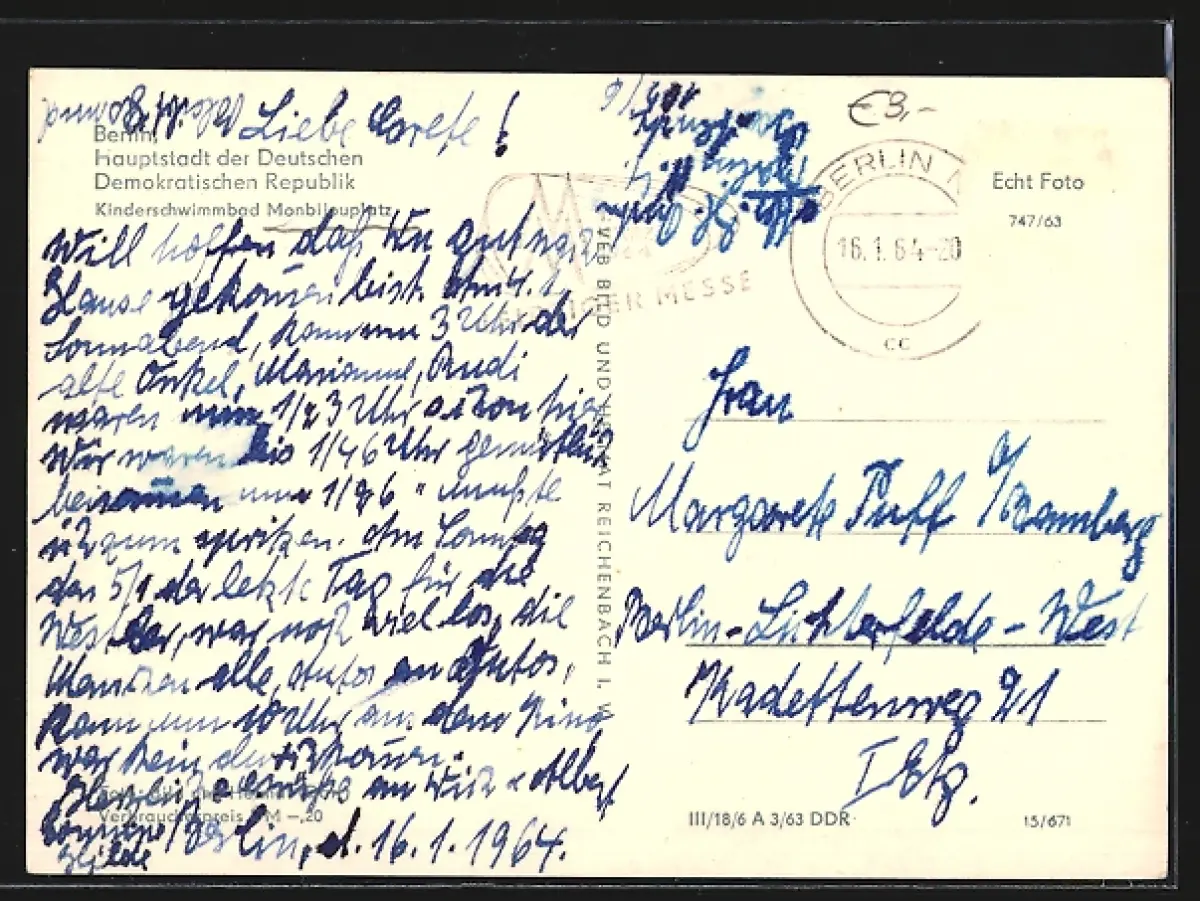 Liebe Grete!
Berlin,
Hauptstadt der Deutschen
Demokratischen Republik
Kinderschwimmbad Monbijouplatz
Will hoffen daß Du gut nach
Hause gekommen bist. Am 4.1.
Sonnabend, kam um 3 Uhr der
alte Onkel, Marianne, Rudi
waren um 1/2 3 Uhr schon hier
Wir waren bis 1/4 6 Uhr gemütlich
beisammen um 1/2 6 " mußte
ich zum spritzen. Am Sonntag
den 5/1 der letzte Tag für die
Westler, war noch viel los, die
Menschen alle, Autos an Autos,
kam um 10 Uhr aus dem Kino
war kein durchkommen.
Herzliche Grüße an Dich u Albert
Berlin, d. 16.1.1964.
Hilde
€3,-
BERLIN
16.1.64-20
cc
MESSE
VEB BILD UND HEIMAT REICHENBACH I. V.
Echt Foto
747/63
Frau
Margarete Puff
b/Bamberg
Berlin-Lichterfelde-West
Kadettenweg 21
I Etg.
Verbraucherpreis M -,20
III/18/6 A 3/63 DDR
15/671